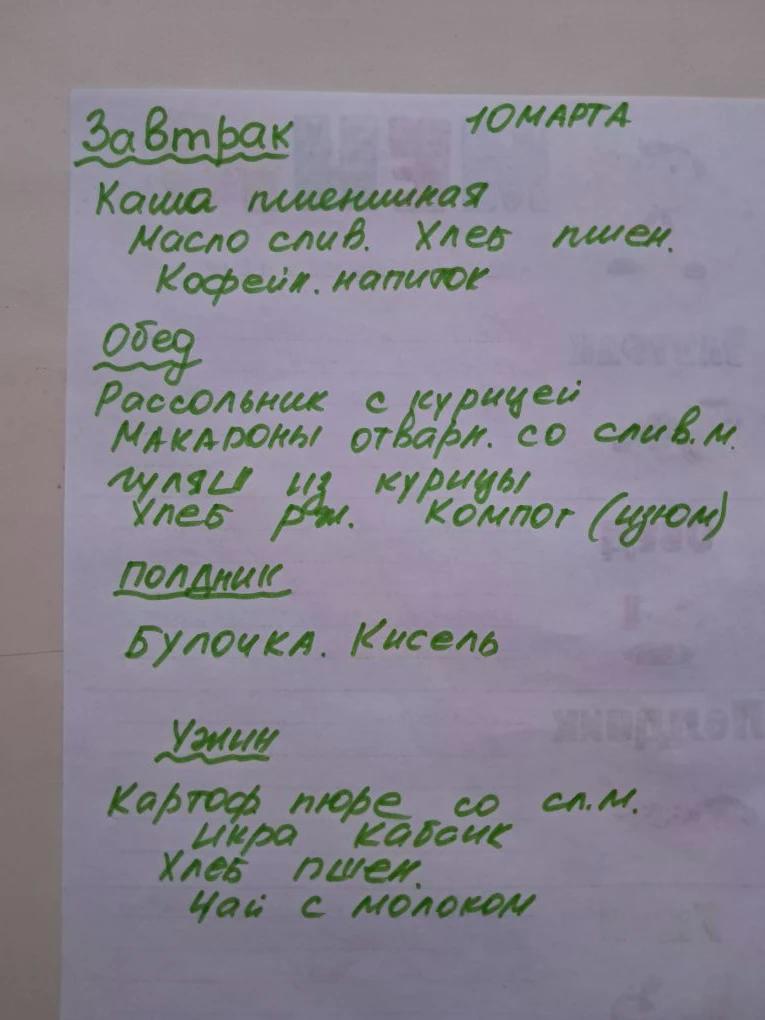 Завтрак 10 МАРТА
Каша пшеничная
Масло слив. Хлеб пшен.
Кофейн. напиток
Обед
Рассольник с курицей
МАКАРОНЫ отварн. со слив.м.
гуляш из курицы
Хлеб рж. Компот (изюм)
Полдник
Булочка. Кисель
Ужин
Картоф пюре со сл.м.
икра кабачк
Хлеб пшен.
Чай с молоком